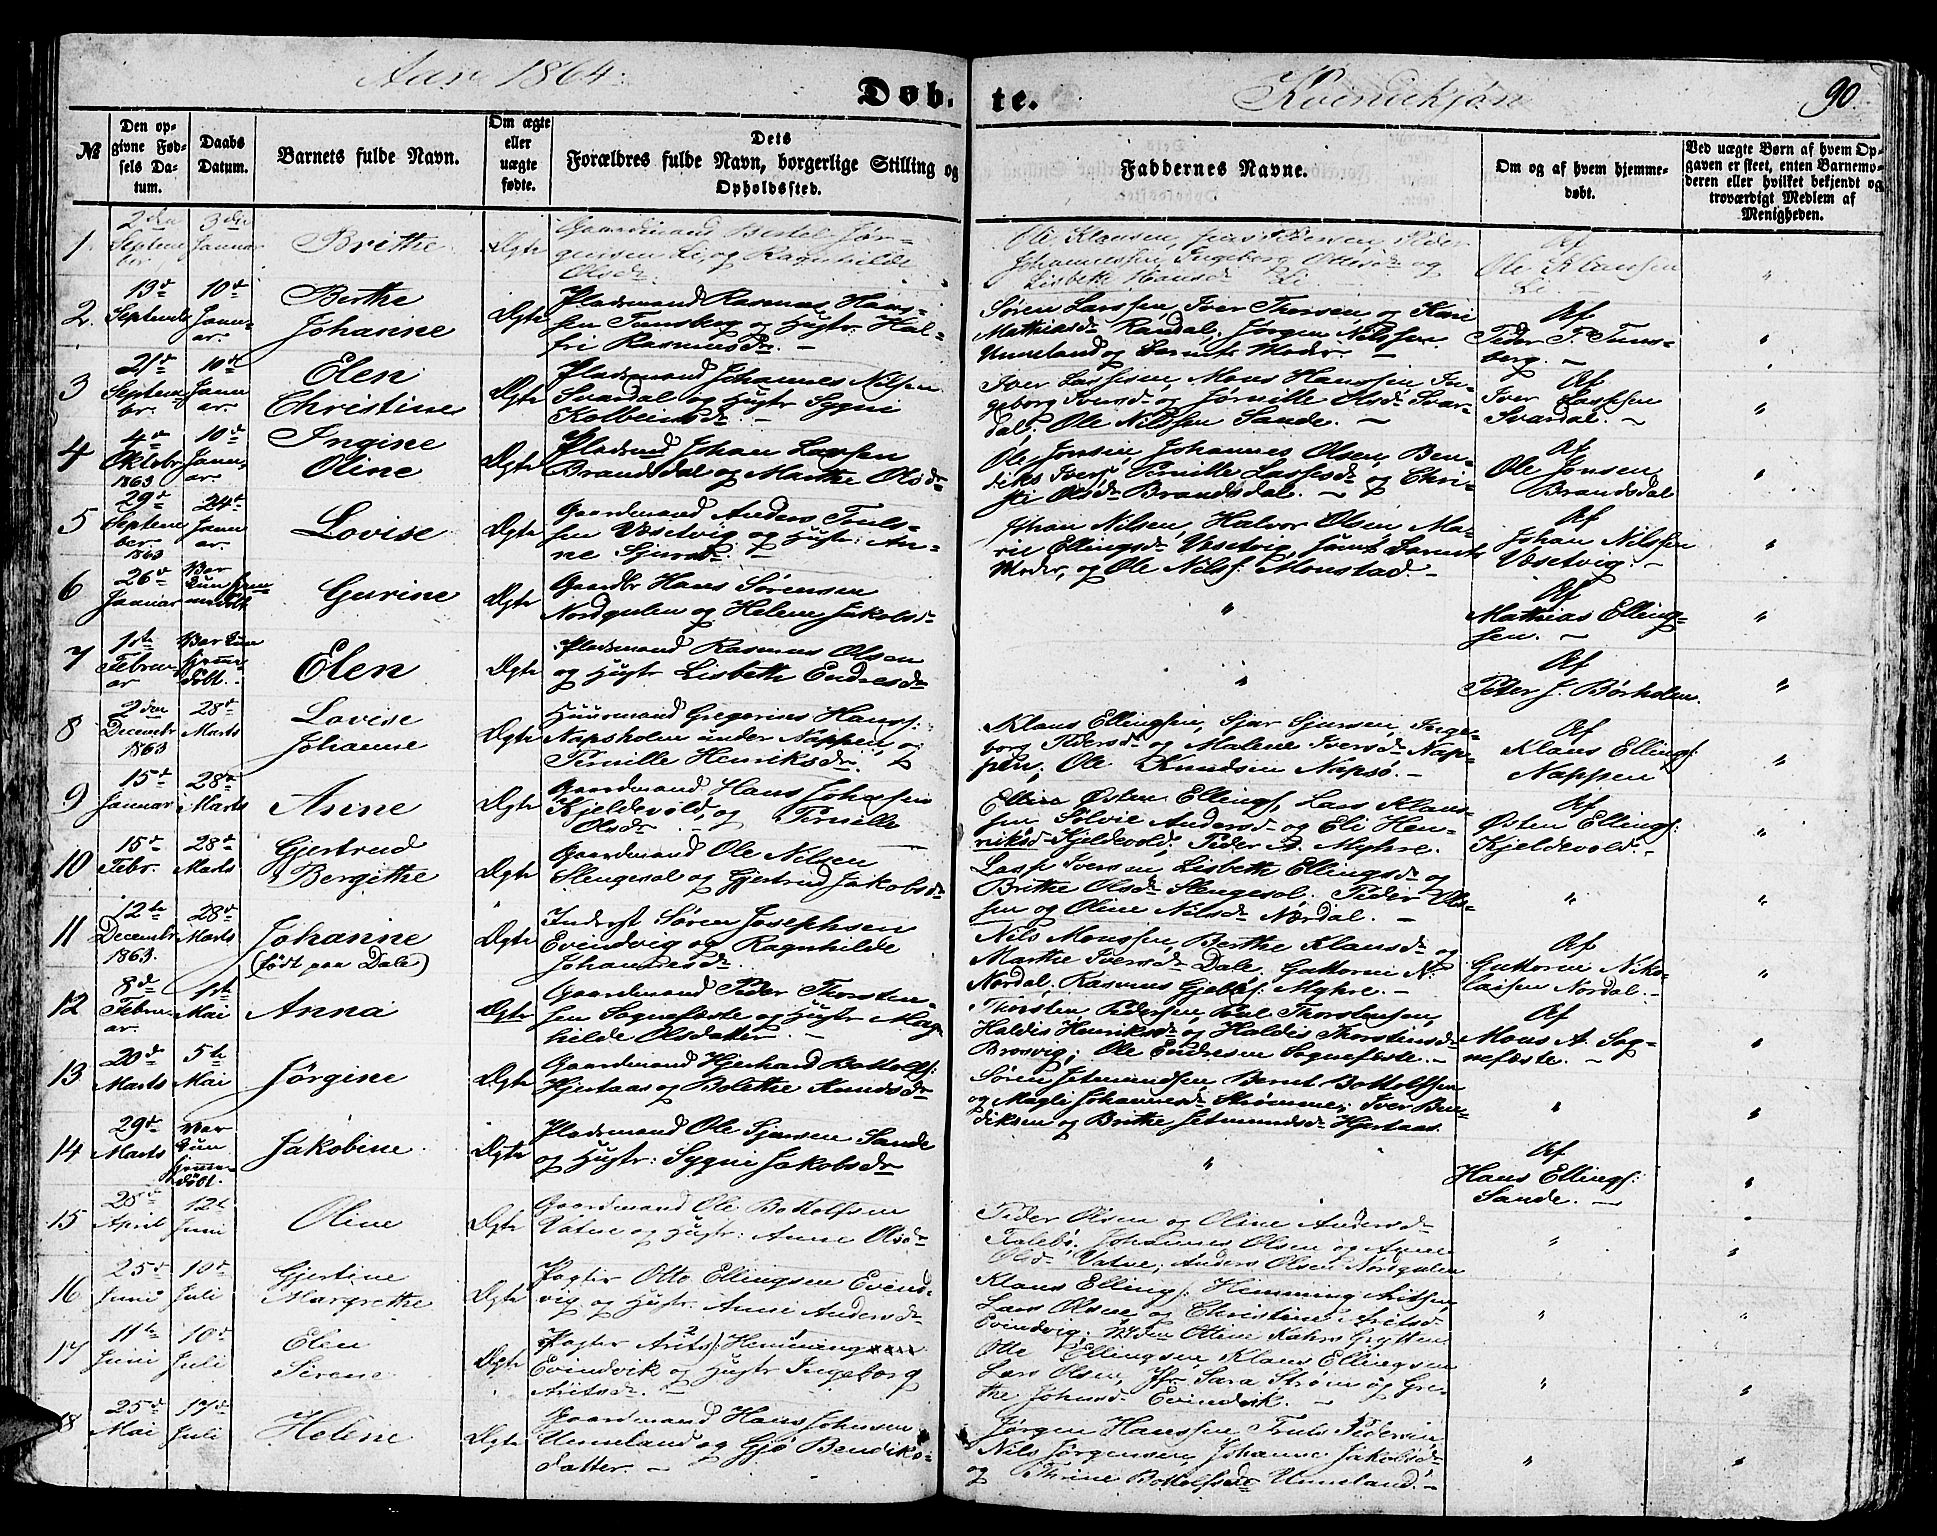 Aar 1864.
Døb-te.
Kvindekjøn
90
№
Den op-
givne Fød-
sels Da-
tum.
Daabs
Datum.
Barnets fulde Navn.
Om ægte
eller
uægte
fødte.
Dets
Forældres fulde Navn, borgerlige Stilling og
Opholdssted.
Faddernes Navne.
Om og af hvem hjemme-
døbt.
Ved uægte Børn af hvem Op-
gaven er skeet, enten Barnemo-
deren eller hvilket bekjendt og
troværdigt Medlem af
Menigheden.
1.
2den
Septem
ber
3die
Januar
Brithe
Ægte
Gaardmand Bertel Jør-
gensen Li, og Ragnhilde
Olsdr
Ole Klausen, Jens Pedersen, Peder
Johannessen, Ingeborg Ottesdr og
Lisbeth Hansdr Li
Af
Ole Klausen
Li
"
2.
13d
Septemb
10d
Janu-
ar.
Berthe
Johanne
Ægte
Pladsmand Rasmus Hans-
sen Tunsberg og Hustr. Hal-
fri Rasmusdr. –
Søren Larssen, Iver Thorsen og Kari
Mathiasdr Randal; Jørgen Nilssen
Unneland og Barnets Moder. –
Af
Peder P. Tuns-
berg. –
"
3
21d
Septem-
br.
10d
Janu-
ar.
Elen
Christine
Ægte
Pladsmand Johannes Nilsen
Svardal og Hustr Sygni
Kolbeinsdr. –
Iver Lassesen, Mons Hanssen, In-
geborg Iversdr og Jørnille Olsdr Svar-
dal; Ole Nilssen Sande. –
Af
Iver Lassesen
Svardal. –
"
4
4d
Oktobr
1863
10d
Janu-
ar.
Ingine
Oline
Ægte
Pladsmd Johan Lassen
Brandsdal og Marthe Olsdr
Ole Jonsen, Johannes Olsen, Ben-
diks Ivers; Pernille Lassesdr og Chri-
sti Olsdr Brandsdal. –
Af
Ole Jonsen
Brandsdal
"
5
29d
Septem
ber.
1863
24d
Janu
ar.
Lovise
Ægte
Gaardmand Anders Truls-
sen Vesetvig og Hustr: An-
ne Sjursdr. –
Johan Nilsen, Halvor Olsen, Ma-
rie Ellingsdr Vesetvig, samt Barnets
Moder, og Ole Nils: Monstad. –
Af
Johan Nilssen
Vesetvig. –
"
6
26d
Januar
Var
kun hjem-
medøbt
Gurine
Ægte
Gaardbr Hans Sørensen
Nordgulen og Helene Jakobsdr
"
Af
Mathias Elling-
sen. –
"
7
1ste
Februar
Var kun
hjemme-
døbt.
Elen
Ægte
Pladsmand Rasmus Olsen
og Hustr Lisbeth Endresdr
"
Af
Peder J. Børholm.
"
8
2den
Decembr
1863
28d
Marts
Lovise
Johanne
Ægte
Huusmand Gregorius Hans:
Napsholm under Nappen, og
Pernille Henriksdr.
Klaus Ellingsen, Sjur Sjursen, Inge-
borg Pedersdr og Malene Iversdr Nap-
pen; Ole Knudsen Napsø. –
Af
Klaus Ellings:
Nappen
"
9
15d
Januar
28d
Marts
Anne
Ægte
Gaardmand Hans Johnsen
Kjeldevold, og Pernille
Olsdr
Østen Ellings, Lars Klaus-
sen Sølvie Andersdr og Eli Hen-
riksdr Kjeldevold; Peder A. Myhre.
Af
Østen Ellings:
Kjeldevold. –
"
10
15d
Febr.
28d
Marts
Gjertrud
Bergithe
Ægte
Gaardmand Ole Nilsen
Slengesol og Gjertrud Jakobsdr
Lasse Iversen Lisbeth Ellingsdr og
Brithe Olsdr Slengesol; Peder Ols-
sen og Oline Nilsdr Nordal. –
"
"
11
12te
Decembr
1863.
28d
Marts
Johanne
(født paa Dale)
Ægte
Inderst Søren Josephsen
Evindvig og Ragnhilde
Johannesdr.
Nils Monssen, Berthe Klausdr og
Marthe Iversdr Dale; Guttorm N:
Nordal, Rasmus Gjels: Myhre. –
Af
Guttorm Niko-
laisen Nordal. –
"
12
8d
Febru
ar.
1ste
Mai
Anna
Ægte
Gaardmand Peder Thorsten-
sen Sognefæste og Hustr Mag-
hilde Olsdatter. –
Thorsten Pedersen, Paul Thorstensen,
Haldis Henriksdr og Haldis Thorstensdr
Brosvig; Ole Endresen Sognefæste. –
Af
Mons A. Sog-
nefæste. –
"
13
20d
Marts
5te
Mai
Jørgine
Ægte
Gaardmand Hjerhard Bottolfs:
Hjertaas og Bolethe Knudsdr
Søren Jetmundsen, Bernt Bottolfsen
og Magli Johannesdr Strømme; Iver Ben-
diksen og Brithe Jetmundsdr Hjertaas.
"
"
14
29d
Marts
Var
kun
hjemme-
døbt.
Jakobine
Ægte
Pladsmand Ole Sjursen Sande
og Hustr: Sygni Jakobsdr
"
Af
Hans Ellings:
Sande. –
"
15
28d
April
12te
Juni
Oline
Ægte
Gaardmand Ole Bottolfsen
Vatne og Hustr: Anne Olsdr
Peder Olsen og Oline Andersdr
Johannes Olsen og Anne
Olsdr Vatne; Anders Olsen Nordgulen
"
"
16
25d
Juni
10d
Juli
Gjertine
Margrethe
Ægte
Pagter Otto Ellingsen Evind-
vig og Hustr. Anne Andersdr
Klaus Ellings: Hemming Aritsen
Lars Olsen og Christine Aritsdr
Evindvig; Madm Oline Kahrs Grytten
"
"
17
11te
Juni
10d
Juli
Elen
Serene
Ægte
Pagter Arits Hemming
Evindvik og Hustr Ingeborg
Aritsdr. –
Otte Ellingsen Klaus Ellingsen
Lars Olsen, Jfr Sara Strøm og Gre-
the Johnsdr Evindvik. –
"
"
18
25d
Mai
17d
Juli
Heline
Ægte
Gaardmand Hans Johnsen
Unneland og Gjø Bendiks-
datter. –
Jørgen Hanssen, Truls Pedersen,
Nils Jørgensen, Johanne Jakobsdr
og Thrine Bottolfsdr Unneland. –
"
"